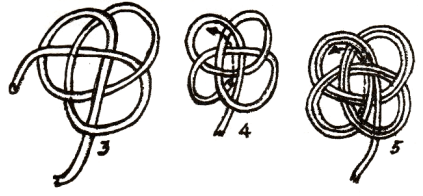 3 4 5